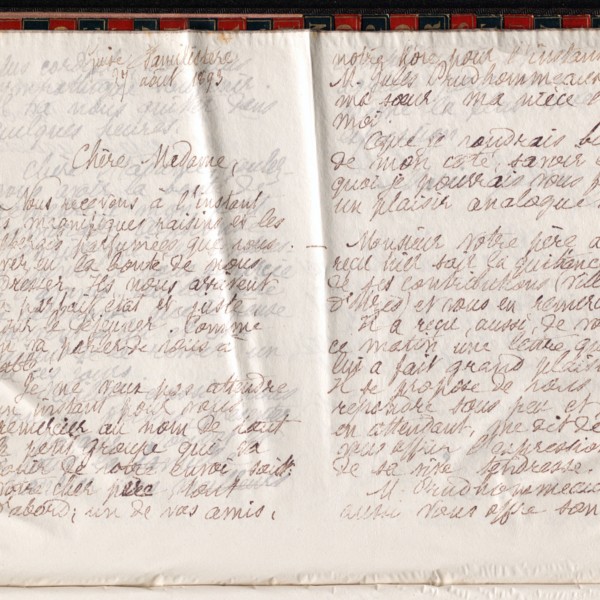 Guise Familistère
27 août 1893
Chère Madame,
Nous recevons à l'instant
magnifiques raisins et les
parfumées que vous
avez eu la bonté de nous
. Ils nous arrivent
parfait état et juste
pour le déjeuner. Comme
Je ne veux pas attendre
un instant pour vous
remercier au nom de tout
le petit groupe qui va
jouir de votre envoi soit:
votre cher père tout
d'abord; un de vos amis,
notre hôte pour l'instant
M. Jules Prudhommeaux
ma sœur, ma nièce
moi.
je voudrais
de mon côté, savoir
quoi je pourrais vous
un plaisir analogue
Monsieur votre père a
reçu hier soir la quittance
de ses contributions (Ville
d'Uzès) et vous en remercie
Il a reçu, aussi, de
ce matin une lettre qui
lui a fait grand plaisir
il se propose de vous
répondre sous peu et
en attendant, me dit de
vous offrir l'expression
de sa vive tendresse.
M. Prudhommeaux
aussi vous offre